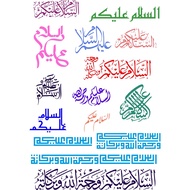 السلام عليكم
السلام عليكم
السلام عليكم
السلام عليكم
السلام عليكم
السلام عليكم
السلام عليكم ورحمة الله
السلام عليكم
السلام عليكم
السلام عليكم
السلام عليكم ورحمة الله وبركاته
السلام عليكم ورحمة الله وبركاته
السلام عليكم ورحمة الله وبركاته